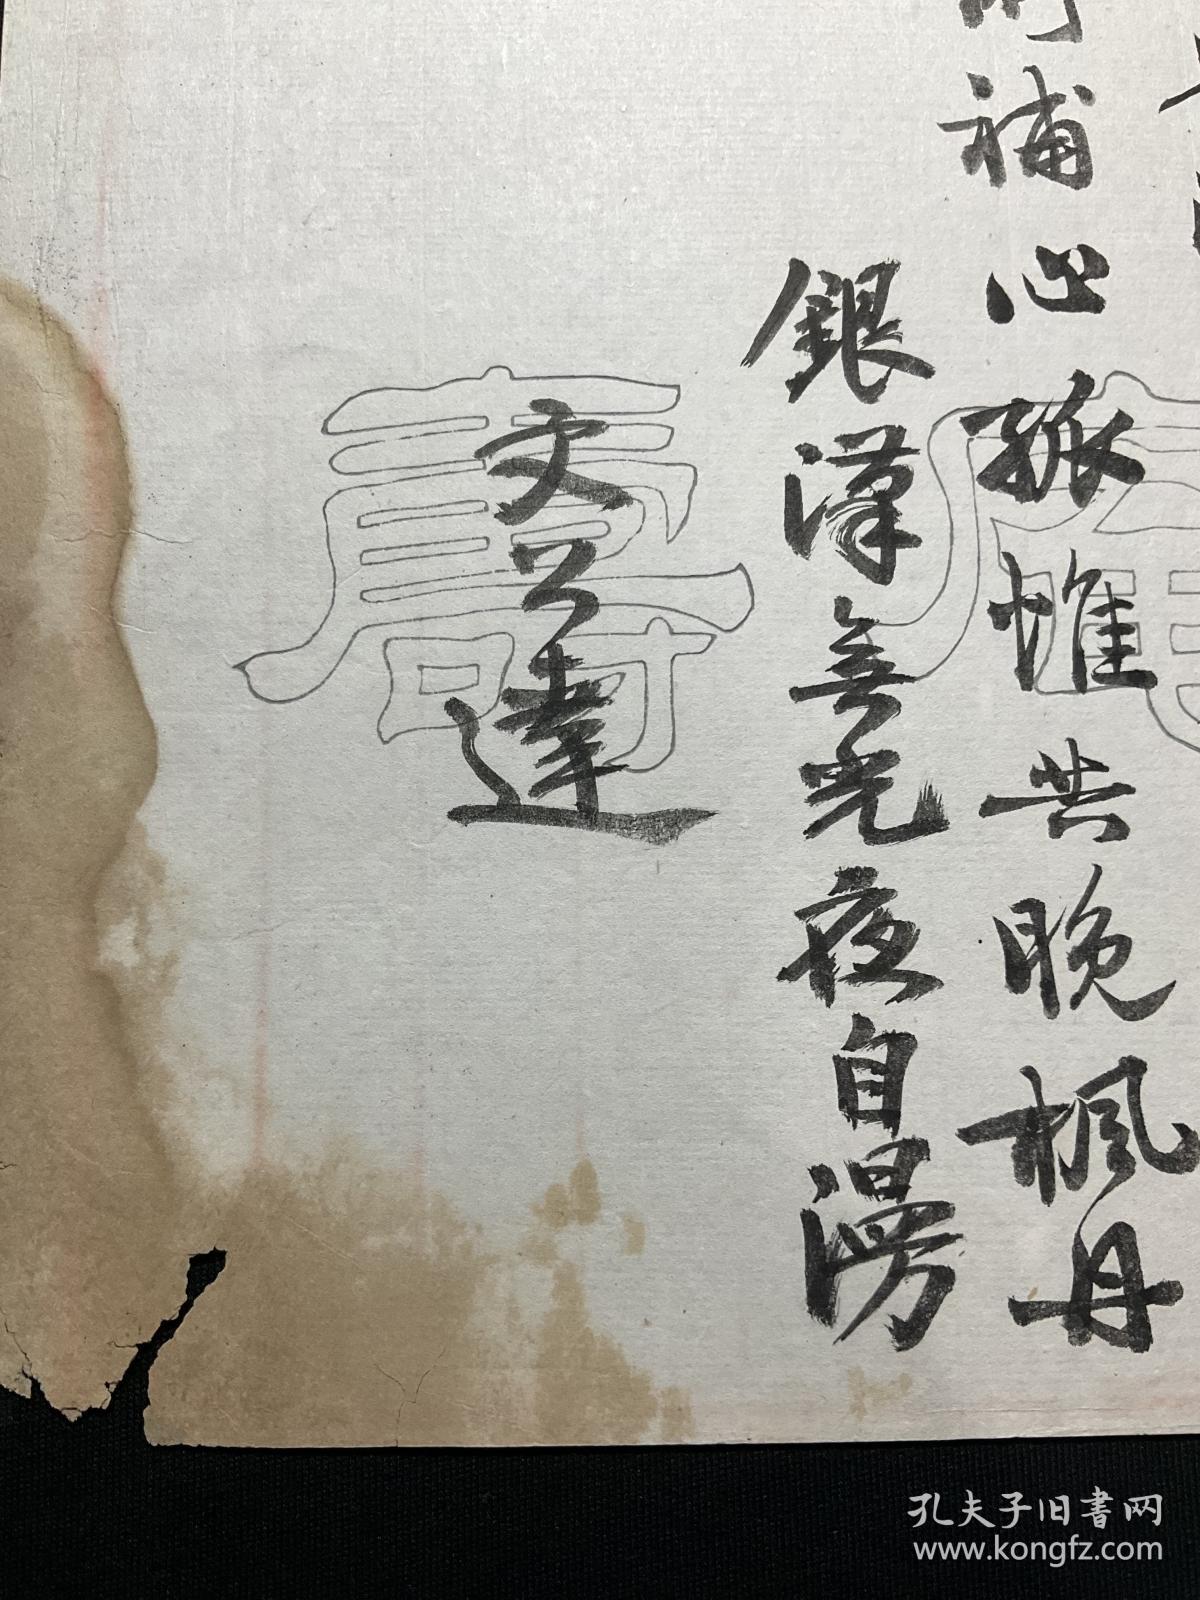 補心孤惟共晚楓丹
銀漢無光夜自漫
文公達
孔夫子旧書网
www.kongfz.com